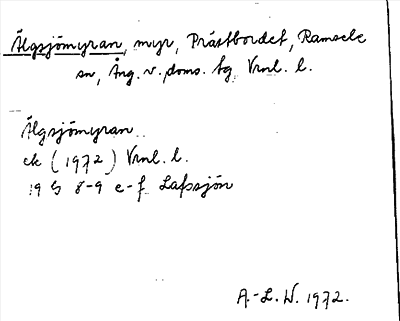 Älgsjömyran, myr, Prästbordet, Ramsele
sn, Ång. v. doms. tg, Vrnl. l.
Älgsjömyran
ek (1972) Vrnl. l.
19 G 8-9 e-f Lafssjön
A.-L. W. 1972.